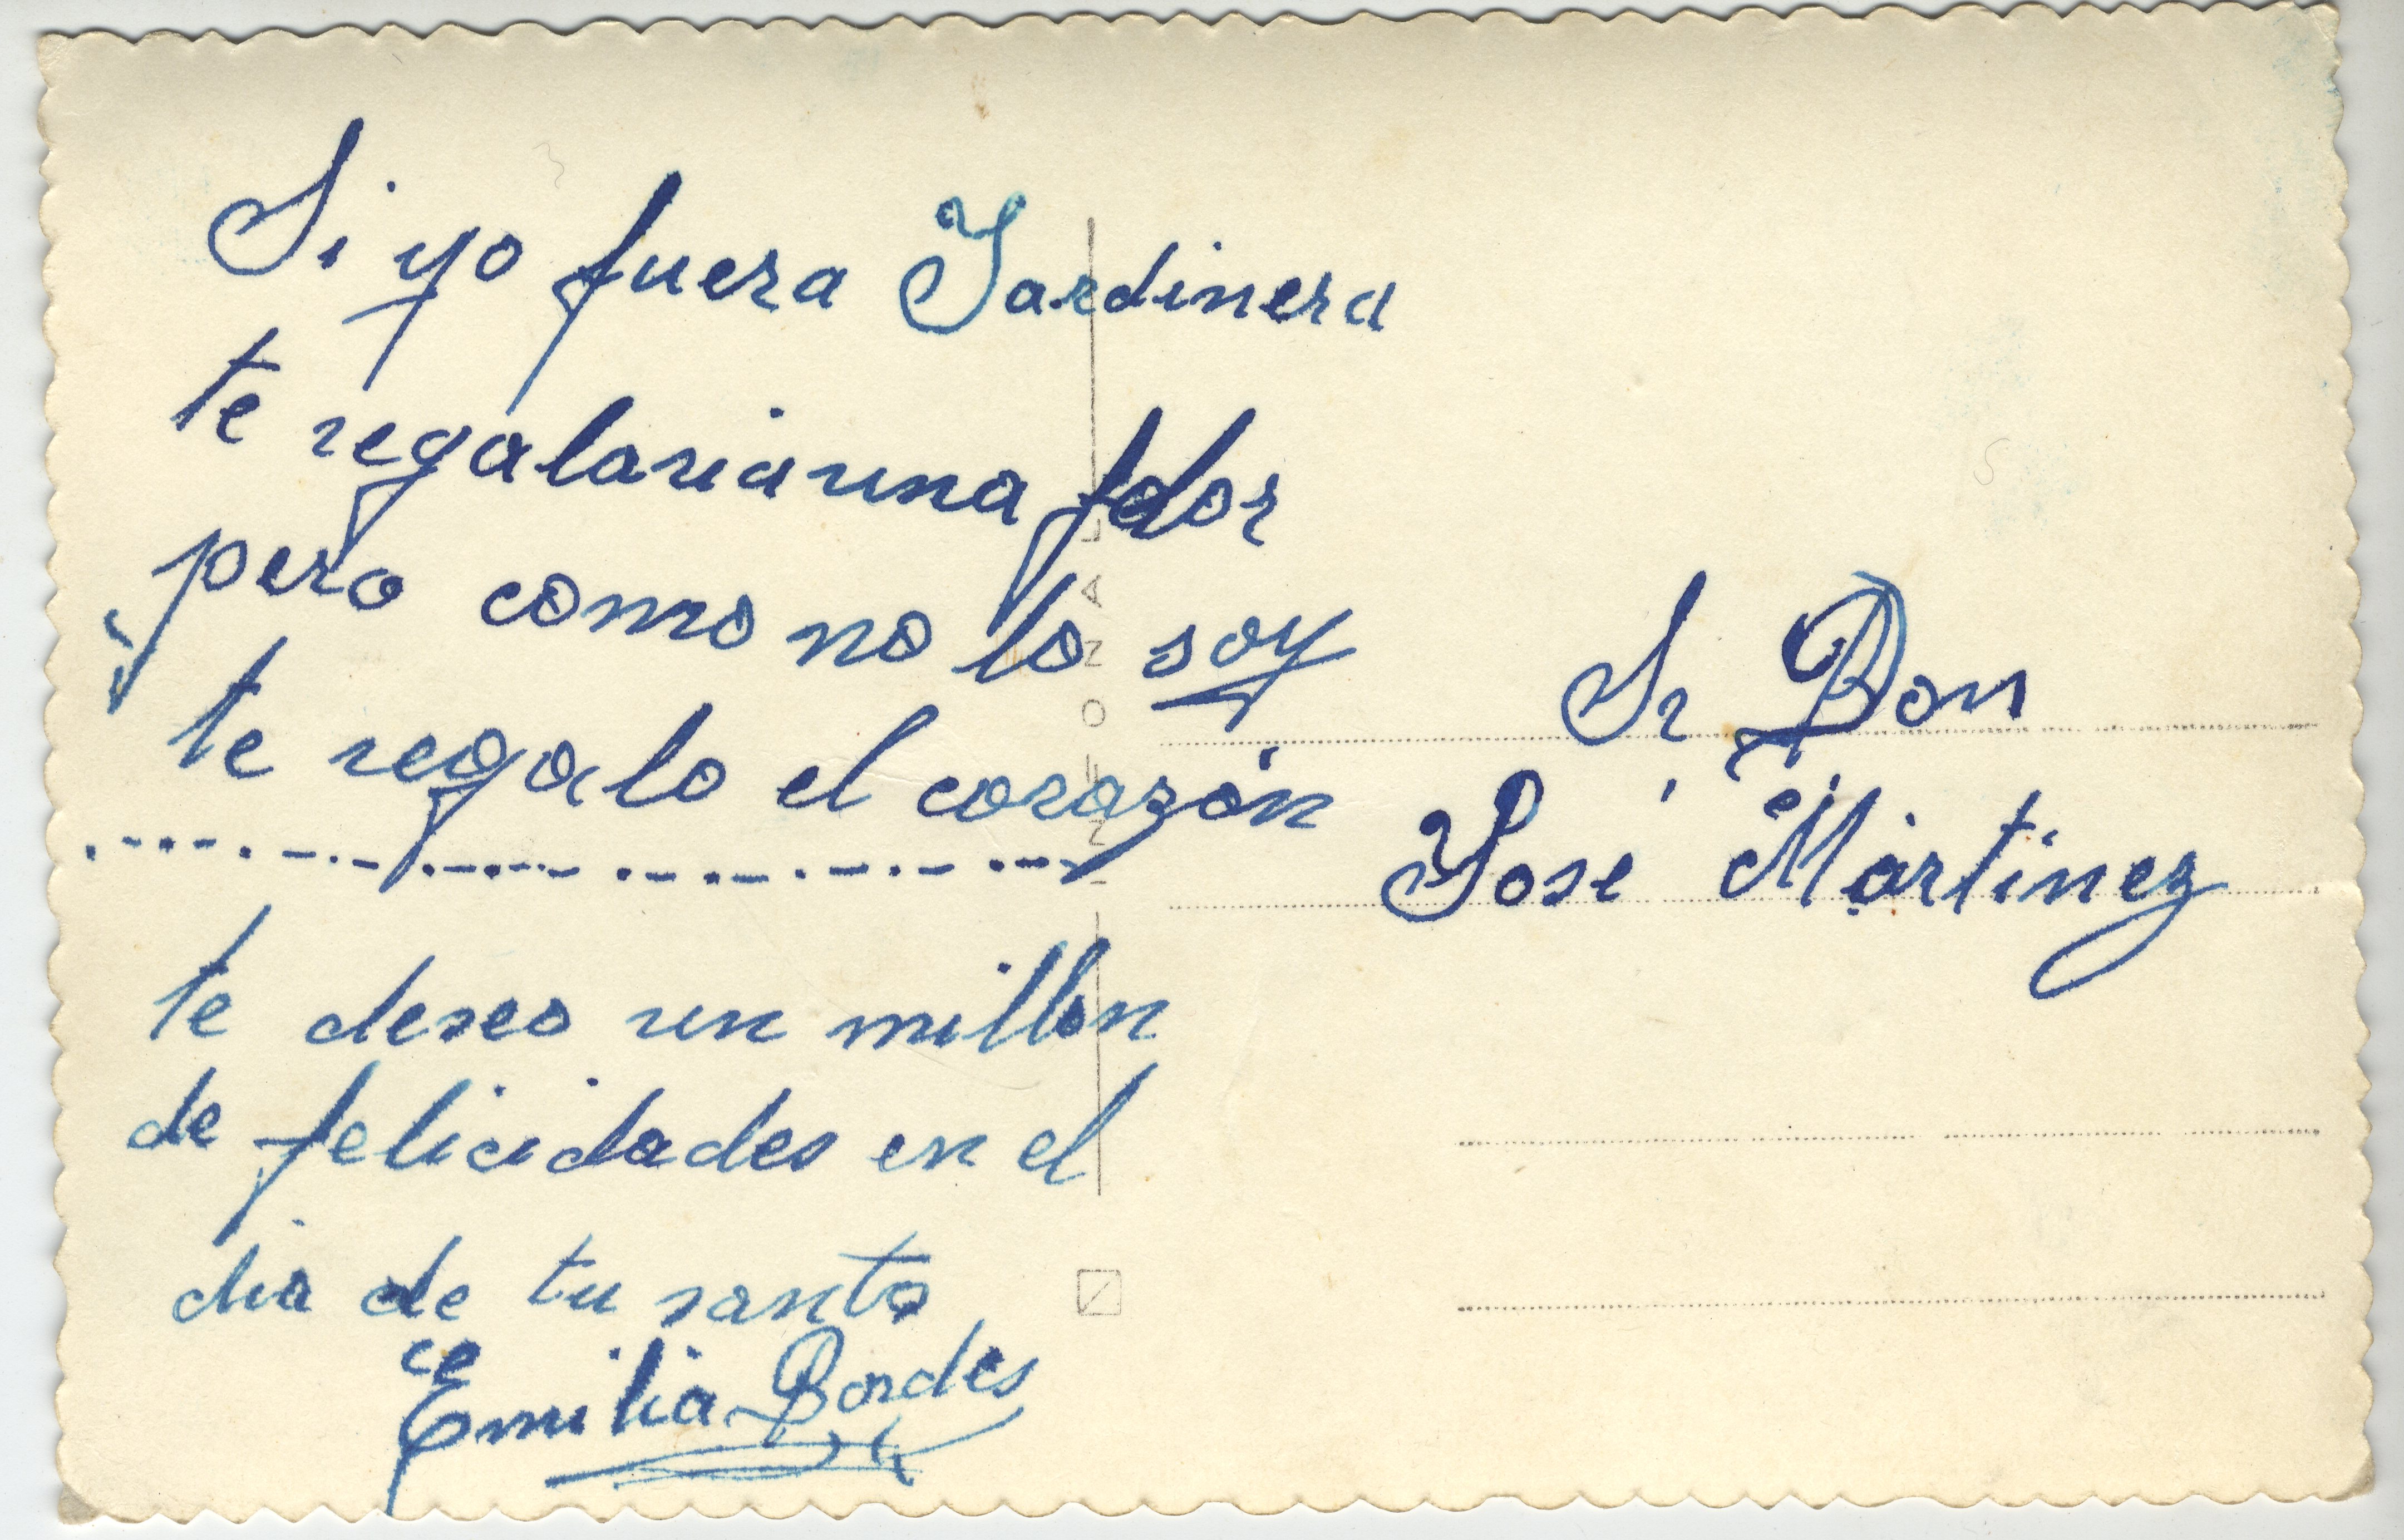 Si yo fuera Jardinera
te regalaria una flor
pero como no lo soy
te regalo el corazón
te deseo un millon
de felicidades en el
dia de tu santo
Emilia Bordes
Sr Don
José Martinez
NACIONAL